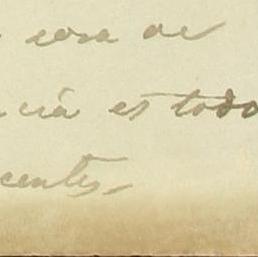 cosa de
cia es todo
centes,